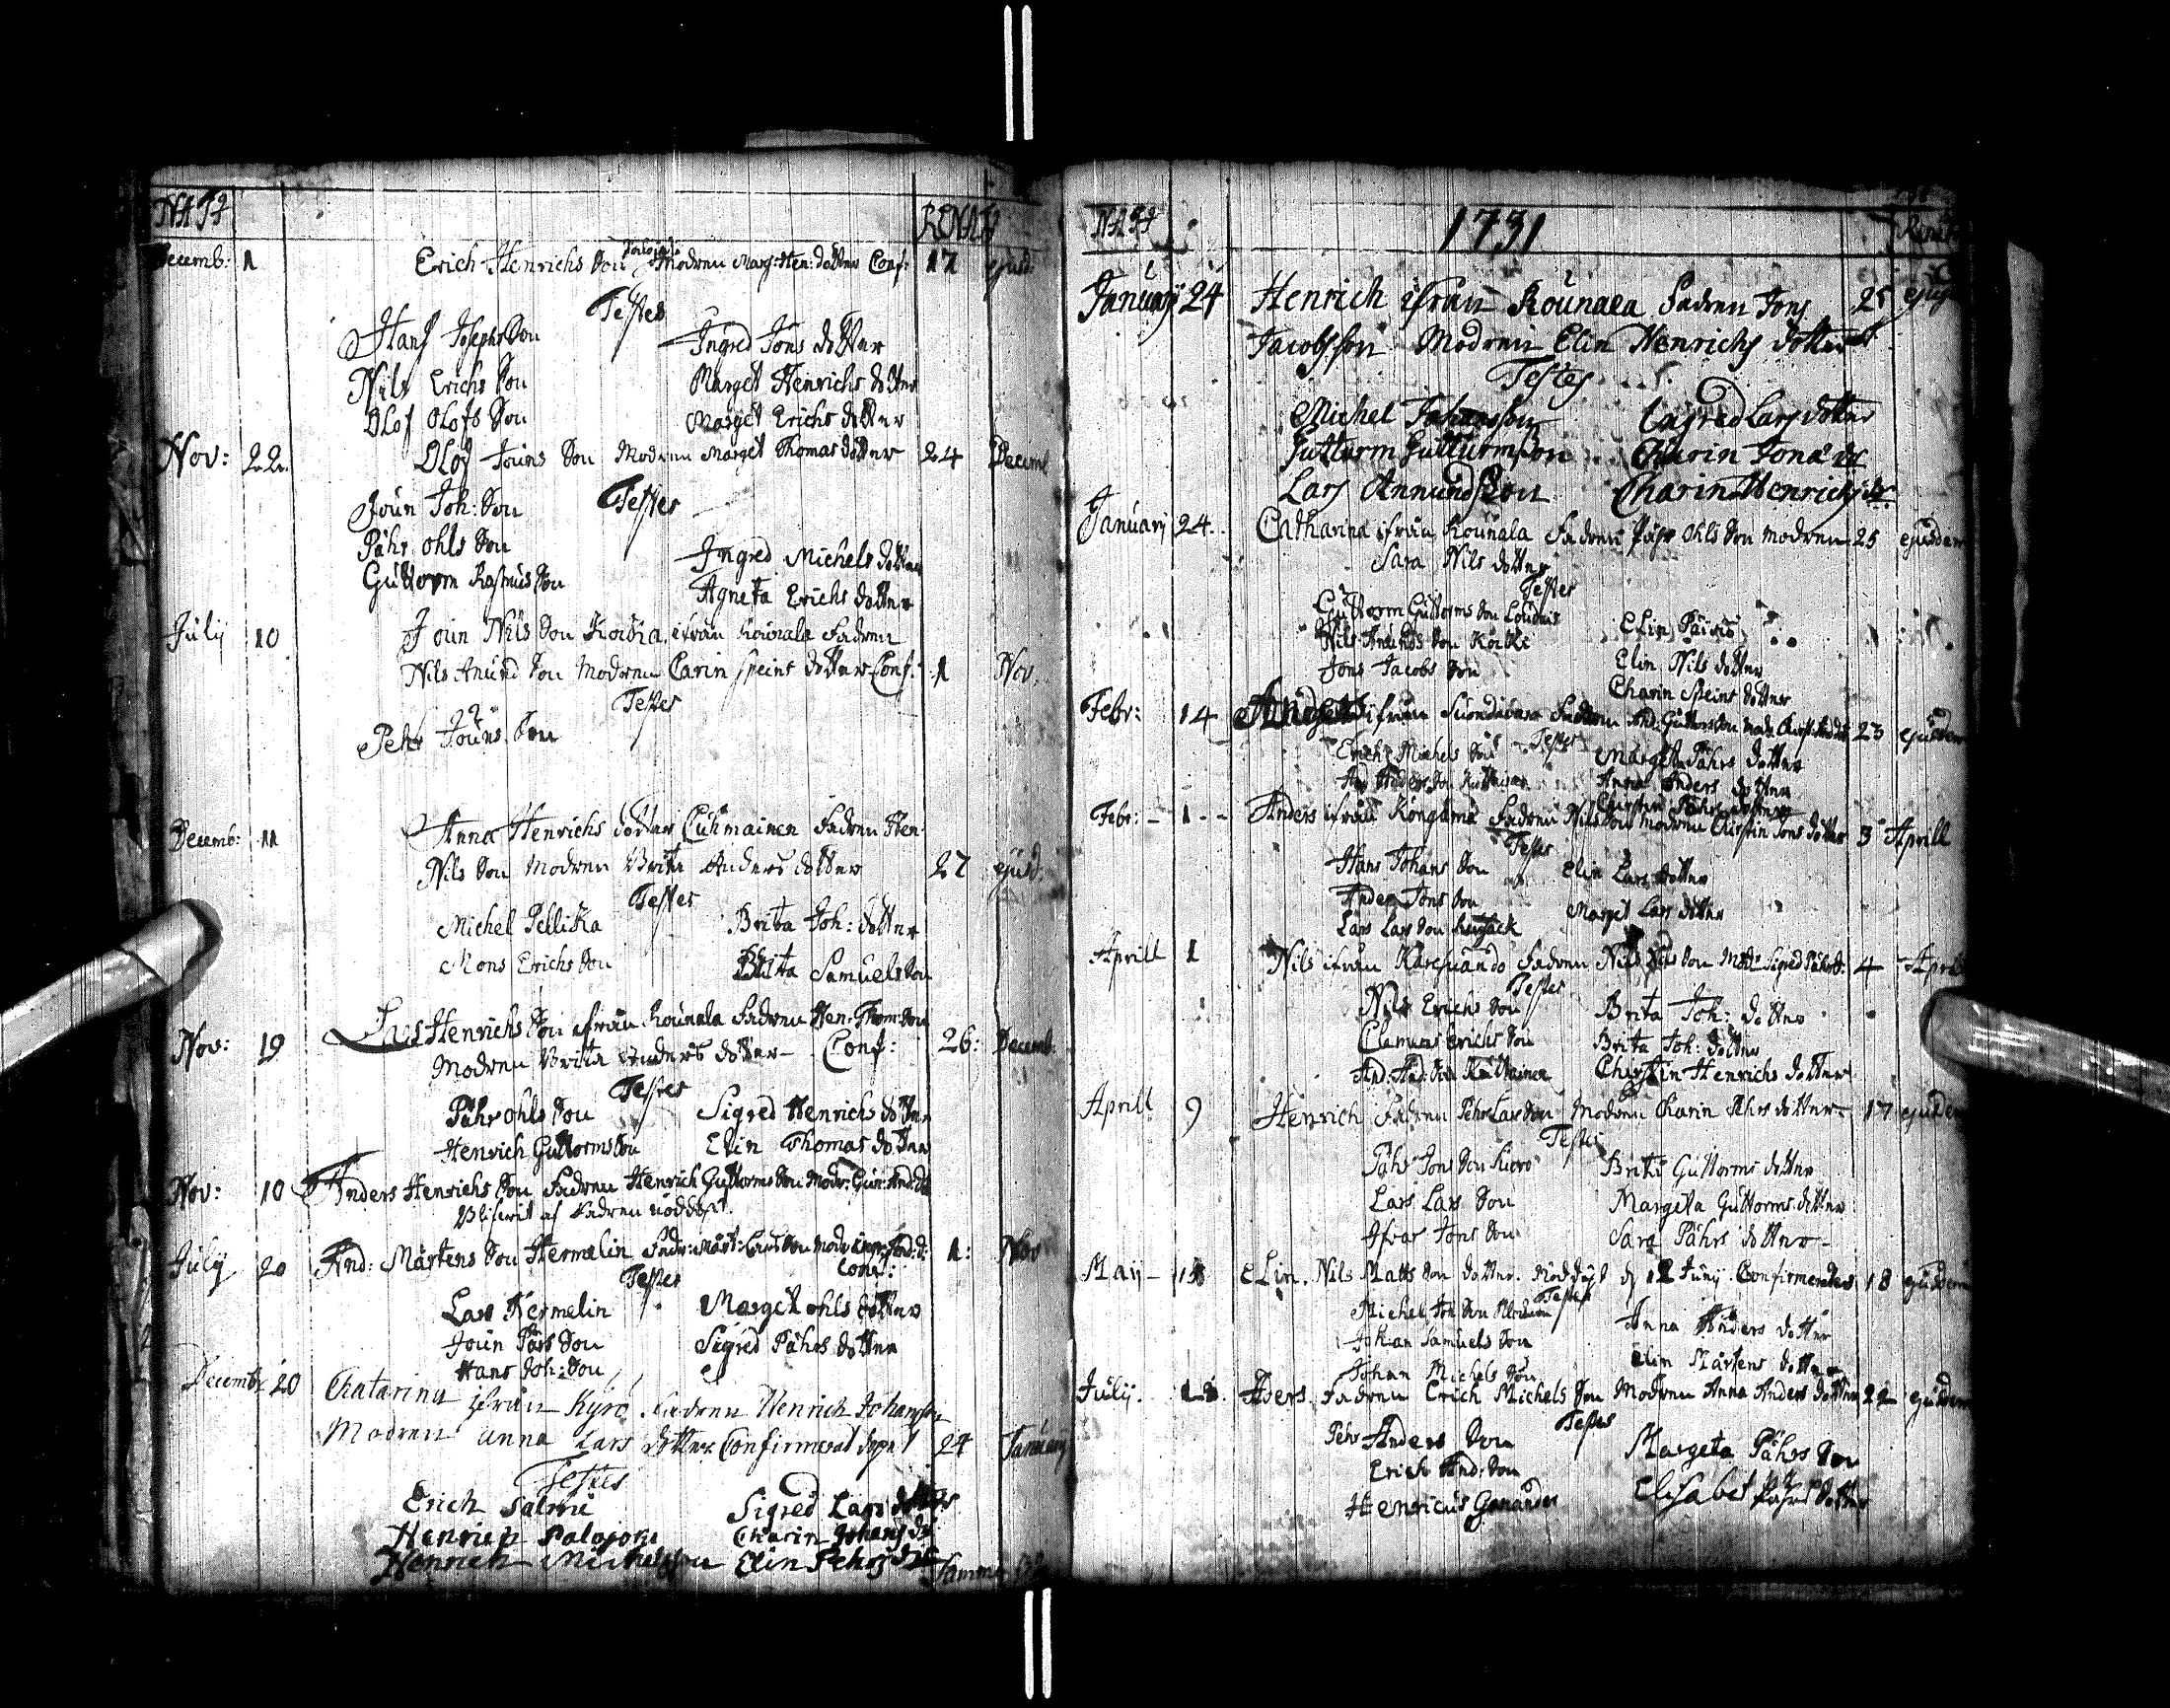 NATI
RENATI
Decemb: 1 Erich Henrichs Son Palojoki Modren Marg: Hen: dotter Conf: 17 ejusd:
Testes
Hans Josephs Son Ingred Jons dotter
Nils Erichs Son Marget Henrichs dotter
Olof Olofs Son Marget Erichs dotter
Nov: 22. Olof Jouns Son Modren Marget Thomas dotter 24 Decemb
Testes
Joun Joh: Son
Påhr Ohls Son Ingred Michels dotter
Guttorm Rasmus Son Agneta Erichs dotter
July 10 Joun Nils Son ifrån Rounala Fadren
Nils Anund Son Modren Carin Speins dotter Conf: 1 Nov.
Testes
Pehr Jouns Son
Decemb: 11 Anna Henrichs dotter Cuhmainen Fadren Hen:
Nils Son Modren Brita Anders dotter 27 ejusd.
Testes
Michel Pellika Brita Joh: dotter
Mons Erichs Son Brita Samuels Son
Nov: 19 Henrichs Son ifrån Rounala Fadren Hen: Thom: Son
Modren Brita Anders dotter Conf: 26: Decemb:
Testes
Påhr Ohls Son Sigred Henrichs dotter
Henrich Guttorms Son Elin Thomas dotter
Nov: 10 Anders Henrichs Son Fadren Henrich Guttorms Son Modr: Gun: And: d:
Blifwit af Fadren nöddöpt.
July 20 And: Mårtens Son Hermelin Fadr: Mårt: Lars Son Modr And: d: 1: Nov
Conf:
Testes
Lars Hermelin Marget Ohls dotter
Joun Pårs Son Sigred Påhrs dotter
Hans Joh: Son
Decemb: 20 Chatarina ifrån Kyrö Fadren Henrich Johansson
Modren Anna Lars dotter Confirmerat dopet 24 January
Testes
Erich Salmi Sigred Lars dotter
Henrich Palojoki Charin Johans dr
Henrich Michelsson Elin Pehrs dr
NATI 1731 Renati
January 24 Henrich ifrån Rounala Fadren Jons 25 ejusd
Jacobsson Modren Elin Henrichs dotter
Testes
Michel Johansson Ingred Lars dotter
Gutturm Gutturmson Charin Jona dr
Lars Annundsson Charin Henrichs dr
January 24. Catharina ifrån Rounala Fadren Påhr Ohls Son Modren 25 ejusdem
Sara Nils dotter
Testes
Guttorm Guttorms Son Elin Päiviö
Nils Anunds Son Elin Nils dotter
Jons Jacobs Son Charin Speins dotter
Febr: 14 ifrån Suondavara Fadren And: Guttorms Son 23 ejusdem
Testes
Erich Michels Son Marget Påhrs dotter
Anders Son Anna Anders dotter
Chirstin Påhrs dotter
Febr: 1 Anders ifrån Köngämä Fadren Nils Son Modren Chirstin Jons dotter 3 Aprill
Testes
Hans Johans Son Elin Lars dotter
Anders Jons Son Marget Lars dotter
Lars Lars Son
Aprill 1 Nils ifrån Karesuando Fadren Nils Nils Son Modr Sigred Påhrs d: 4 Aprill
Testes
Nils Erichs Son Brita Joh: dotter
Clemens Erichs Son Brita Joh: dotter
And: And: Son Chirstin Henrichs dotter
Aprill 9 Henrich Fadren Pehr Lars Son Modren Karin Pehrs dotter 17 ejusdem
Testes
Påhr Jons Son Brita Guttorms dotter
Lars Lars Son Margeta Guttorms dotter
Ifvar Jons Son Sara Påhrs dotter
Maij Elin. Nils Matts Son dotter. Nöddöpt d 12 Junij Confirmerades 18 ejusdem
Testes
Michel Joh Son Anna Anders dotter
Johan Samuels Son Elin Mårtens dotter
Johan Michels Son
Julij. Aders. Fadren Erich Michels Son Modren Anna Anders dotter 22 ejusdem
Testes
Pehr Anders Son Margeta Påhrs Son
Erich And: Son Elisabet Påhrs dotter
Henricus Ganander